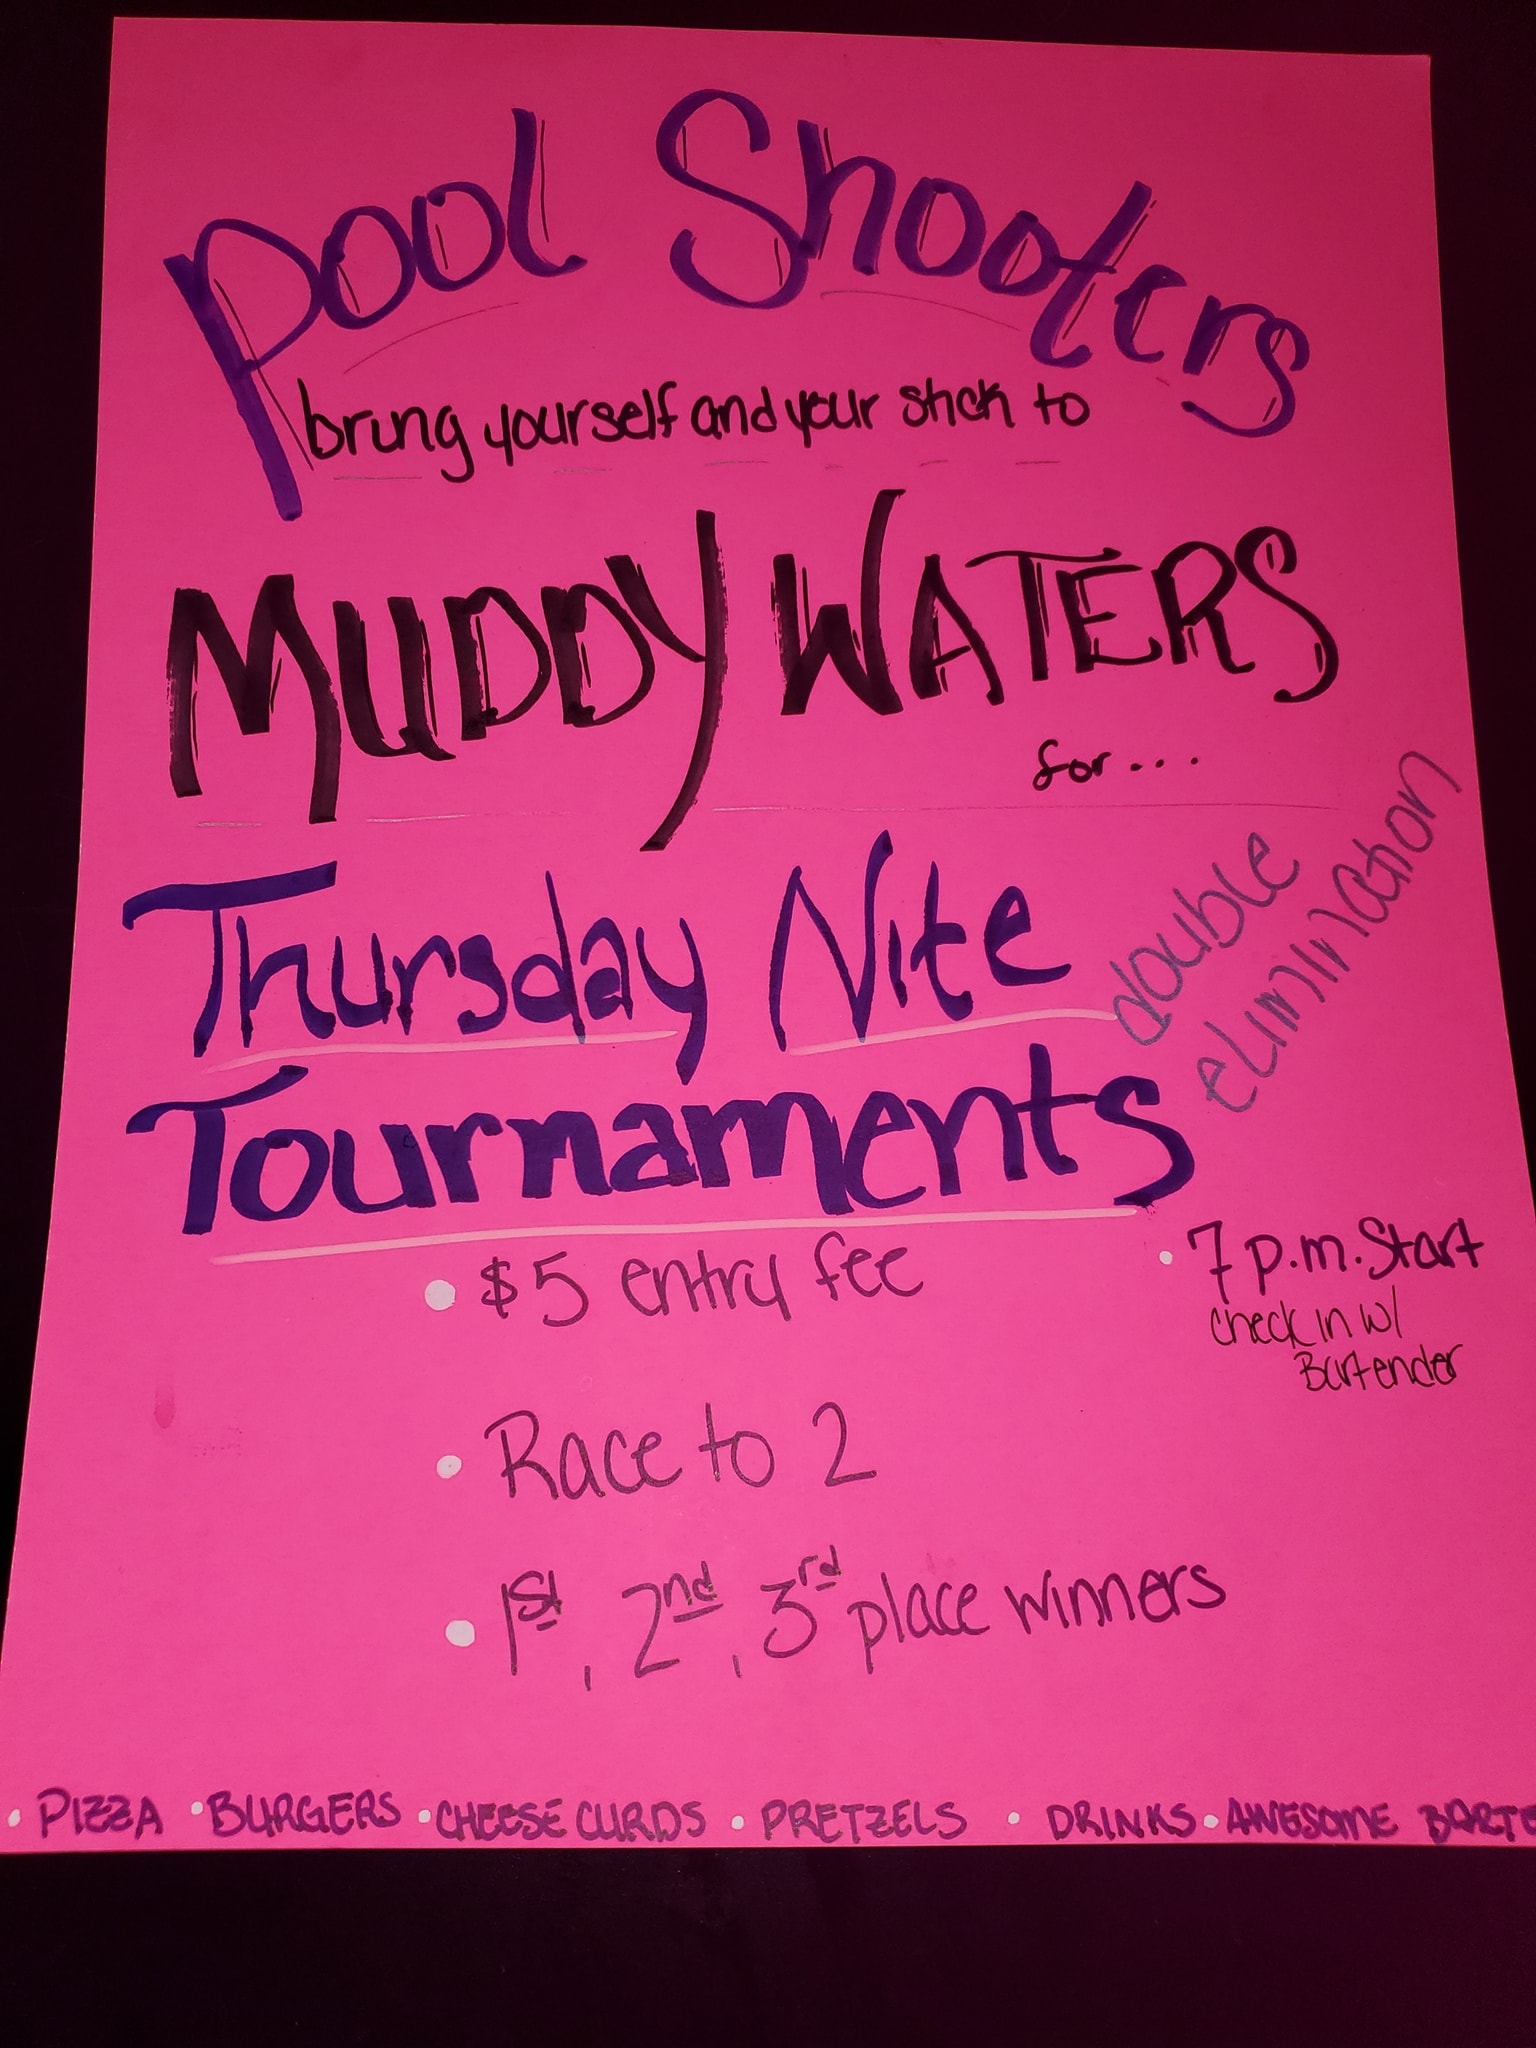 Pool Shooters
bring yourself and your stick to
MUDDY WATERS
for...
Thursday Nite
double
elimination
Tournaments
• $5 entry fee
• 7 p.m. Start
check in w/
Bartender
• Race to 2
• 1st, 2nd, 3rd place winners
• PIZZA • BURGERS • CHEESE CURDS • PRETZELS • DRINKS • AWESOME BARTE